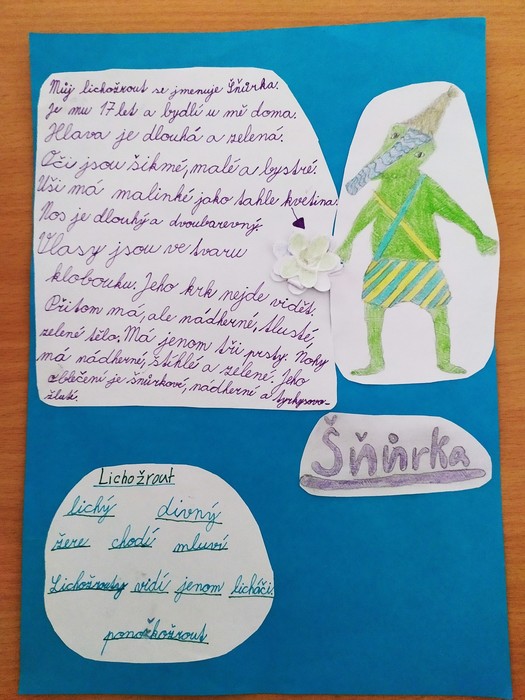 Můj lichožrout se jmenuje Šňůrka.
Je mu 17 let a bydlí u mě doma.
Hlava je dlouhá a zelená.
Oči jsou šikmé, malé a bystré.
Uši má malinké jako tahle květina.
Nos je dlouhý a dvoubarevný.
Vlasy jsou ve tvaru
klobouku. Jeho krk nejde vidět.
Přitom má, ale nádherné, tlusté,
zelené tělo. Má jenom tři prsty. Nohy
má nádherné, štíhlé a zelené. Jeho
oblečení je šňůrkové, nádherné a tyrkysovo-
žluté.
Šňůrka
Lichožrout
lichý divný
žere chodí mluví
Lichožrouty vidí jenom licháči.
ponožkožrout